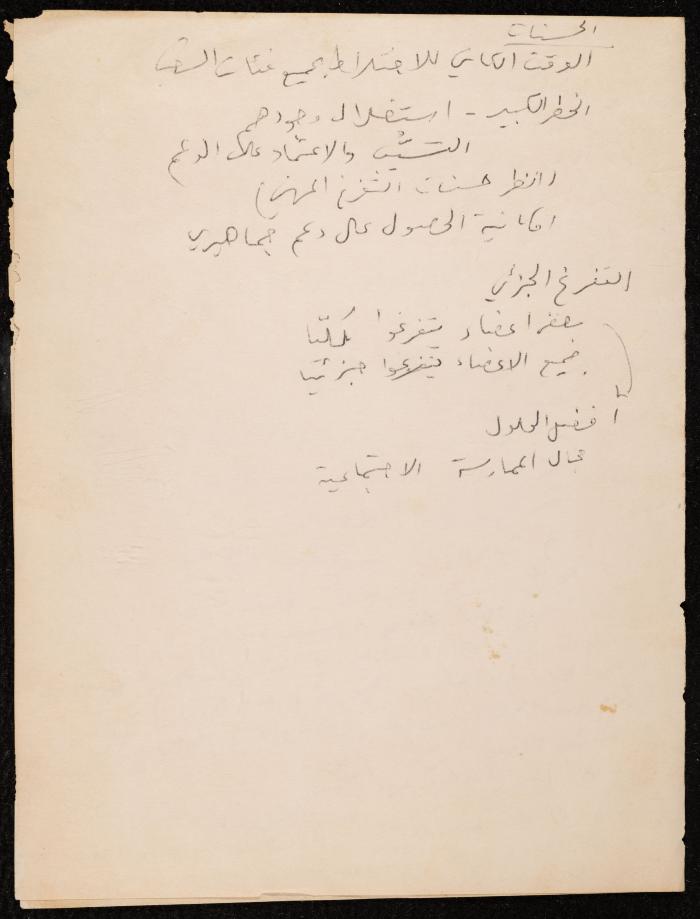 الحسنات
الوقت الكافي للاختلاط بجميع فئات الشعب
الخطر الكبير - استغلال وجودهم
التسيّب والاعتماد على الدعم
(انظر حسنات التفرغ المهني)
امكانية الحصول على دعم جماهيري
التفرغ الجزئي
بعض اعضاء يتفرغوا كليّا
جميع الاعضاء يتفرغوا جزئيّا
أفضل الحلول
مجال الممارسة الاجتماعية